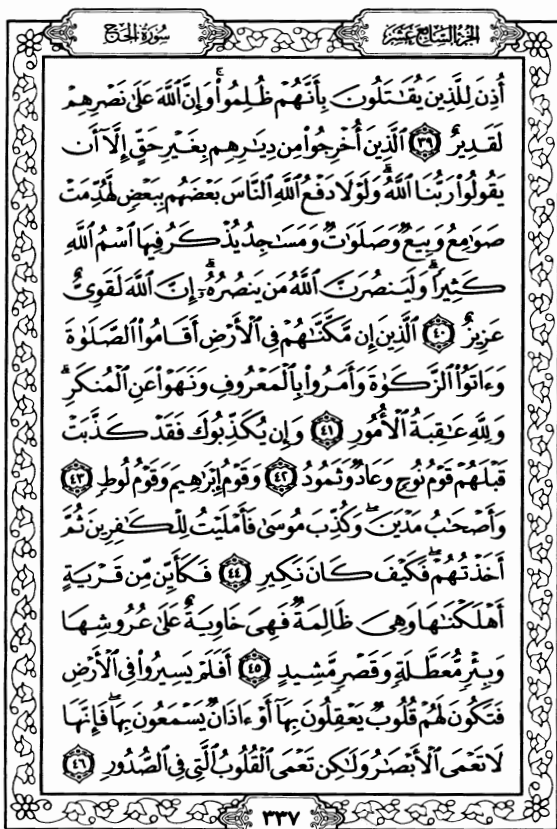 الجزء السابع عشر
سورة الحج
أُذِنَ لِلَّذِينَ يُقَٰتَلُونَ بِأَنَّهُمْ ظُلِمُوا۟ ۚ وَإِنَّ ٱللَّهَ عَلَىٰ نَصْرِهِمْ
لَقَدِيرٌ ٣٩ ٱلَّذِينَ أُخْرِجُوا۟ مِن دِيَٰرِهِم بِغَيْرِ حَقٍّ إِلَّآ أَن
يَقُولُوا۟ رَبُّنَا ٱللَّهُ ۗ وَلَوْلَا دَفْعُ ٱللَّهِ ٱلنَّاسَ بَعْضَهُم بِبَعْضٍ لَّهُدِّمَتْ
صَوَٰمِعُ وَبِيَعٌ وَصَلَوَٰتٌ وَمَسَٰجِدُ يُذْكَرُ فِيهَا ٱسْمُ ٱللَّهِ
كَثِيرًا ۗ وَلَيَنصُرَنَّ ٱللَّهُ مَن يَنصُرُهُۥٓ ۗ إِنَّ ٱللَّهَ لَقَوِىٌّ
عَزِيزٌ ٤٠ ٱلَّذِينَ إِن مَّكَّنَّٰهُمْ فِى ٱلْأَرْضِ أَقَامُوا۟ ٱلصَّلَوٰةَ
وَءَاتَوُا۟ ٱلزَّكَوٰةَ وَأَمَرُوا۟ بِٱلْمَعْرُوفِ وَنَهَوْا۟ عَنِ ٱلْمُنكَرِ ۗ
وَلِلَّهِ عَٰقِبَةُ ٱلْأُمُورِ ٤١ وَإِن يُكَذِّبُوكَ فَقَدْ كَذَّبَتْ
قَبْلَهُمْ قَوْمُ نُوحٍ وَعَادٌ وَثَمُودُ ٤٢ وَقَوْمُ إِبْرَٰهِيمَ وَقَوْمُ لُوطٍ ٤٣
وَأَصْحَٰبُ مَدْيَنَ ۖ وَكُذِّبَ مُوسَىٰ فَأَمْلَيْتُ لِلْكَٰفِرِينَ ثُمَّ
أَخَذْتُهُمْ ۖ فَكَيْفَ كَانَ نَكِيرِ ٤٤ فَكَأَيِّن مِّن قَرْيَةٍ
أَهْلَكْنَٰهَا وَهِىَ ظَالِمَةٌ فَهِىَ خَاوِيَةٌ عَلَىٰ عُرُوشِهَا
وَبِئْرٍ مُّعَطَّلَةٍ وَقَصْرٍ مَّشِيدٍ ٤٥ أَفَلَمْ يَسِيرُوا۟ فِى ٱلْأَرْضِ
فَتَكُونَ لَهُمْ قُلُوبٌ يَعْقِلُونَ بِهَآ أَوْ ءَاذَانٌ يَسْمَعُونَ بِهَا ۖ فَإِنَّهَا
لَا تَعْمَى ٱلْأَبْصَٰرُ وَلَٰكِن تَعْمَى ٱلْقُلُوبُ ٱلَّتِى فِى ٱلصُّدُورِ ٤٦
٣٣٧